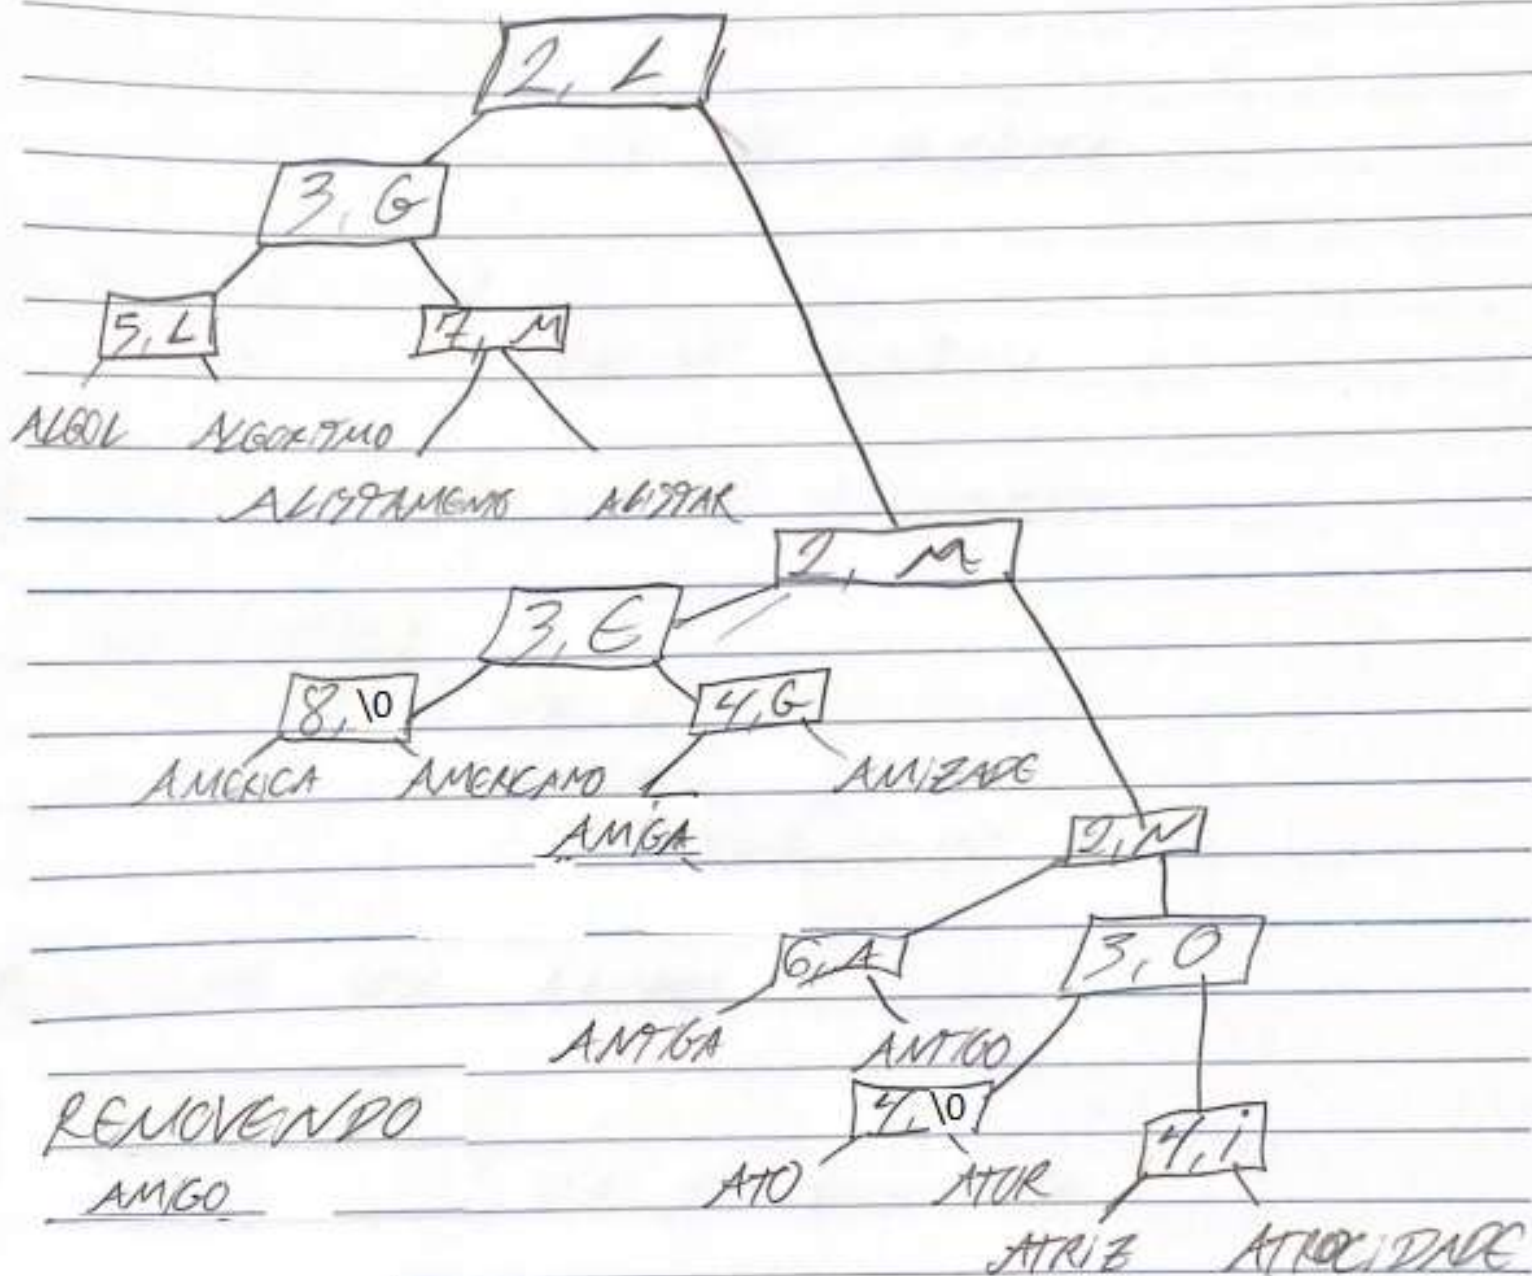 2, L
3, G
5, L 7, M
ALGOL ALGORITMO
ALISTAMENTO ALISTAR
2, M
3, E
8, \0 4, G
AMERICA AMERICANO AMIZADE
AMIGA
2, N
6, A 3, O
ANTIGA ANTIGO
REMOVENDO 4, \0 4, i
AMIGO ATO ATOR
ATRIZ ATROCIDADE